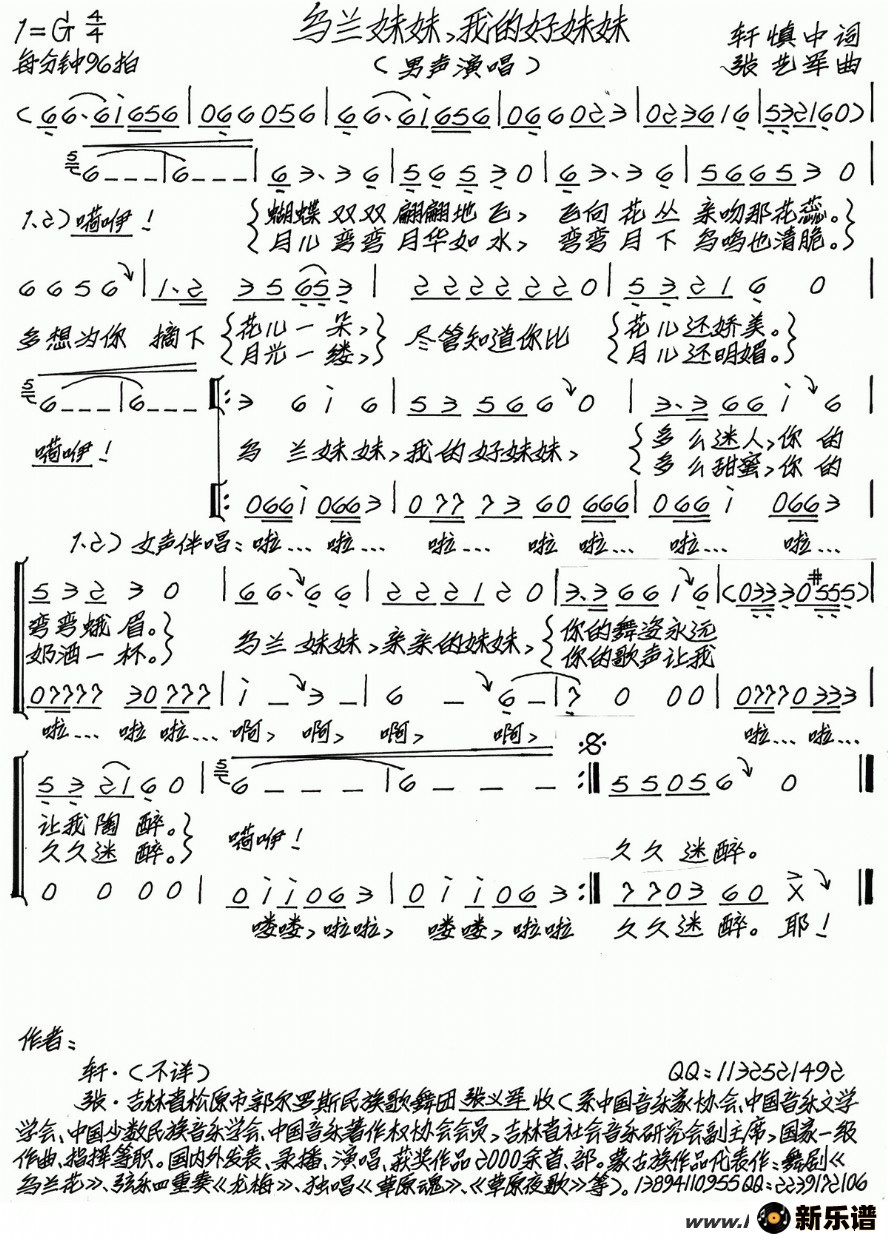 1=G 4/4 乌兰妹妹,我的好妹妹 轩慎中词
每分钟96拍 (男声演唱) 张艺军曲
(66·6i656|066056|66·6i656|066023|023616|532160)|
6---|6---|63·36|56530|63·36|566530|
1.2)嗬咿! {蝴蝶双双翩翩地飞, 飞向花丛亲吻那花蕊。}
{月儿弯弯月华如水, 弯弯月下鸟鸣也清脆。}
6656|1·2 35653|2222220|532160|
多想为你摘下{花儿一朵,}尽管知道你比{花儿还娇美。}
{月光一缕,}{月儿还明媚。}
6---|6---|:36i6|535660|3·366i6|
嗬咿! 乌兰妹妹,我的好妹妹,{多么迷人,你的
{多么甜蜜,你的
|:066i0663|0777360666|066i0663|
1.2)女声伴唱:啦... 啦... 啦... 啦 啦... 啦... 啦...
53230|66·66|222120|3·366i6|(03330#555)|
弯弯蛾眉。} 乌兰妹妹,亲亲的妹妹,{你的舞姿永远
奶酒一杯。} {你的歌声让我
0777730777|i-3-|6-6-|7000|07770333|
啦... 啦 啦... 啊, 啊, 啊, 啊, 啦... 啦...
532160|6---|6---:|550560|
让我陶醉。}
久久迷醉。} 嗬咿! 久久迷醉。
0000|0ii063|0ii063:|770360X|
喽喽,啦啦, 喽喽,啦啦 久久迷醉。耶!
作者:
轩·(不详) QQ:1132521492
张·吉林省松原市郭尔罗斯民族歌舞团张义军收(系中国音乐家协会、中国音乐文学
学会、中国少数民族音乐学会、中国音乐著作权协会会员,吉林省社会音乐研究会副主席,国家一级
作曲、指挥等职。国内外发表、录播、演唱、获奖作品2000余首、部。蒙古族作品代表作:舞剧《
乌兰花》、弦乐四重奏《龙梅》、独唱《草原魂》、《草原夜歌》等)。13894110955QQ:2239172106
www. 新乐谱